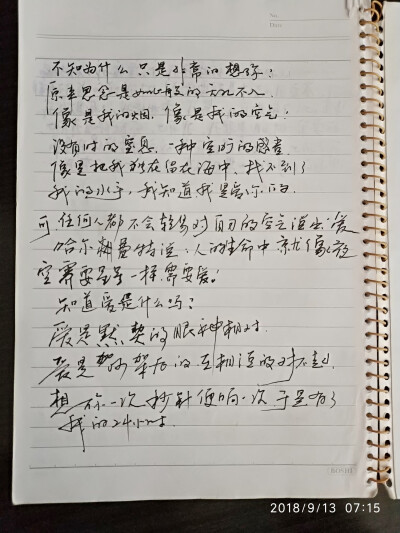 不知为什么 只是非常的想你！
原来思念是如此般的无孔不入
像是我的烟．像是我的空气！
没有时的窒息．一种空旷的
像是把我独在留在海中．找不到了
我的水手，我知道我是爱你的
可．任何人都不会轻易对自己的空气说出"爱
哈尔 费特说．人的生命中就像夜
空需要星星一样．需要爱！
知道爱是什么吗？
爱是默契的眼神相对．
爱是吵架后的互相道的对不起．
想你一次秒针便响一次 于是有了
我的24小时
2018/9/13 07:15